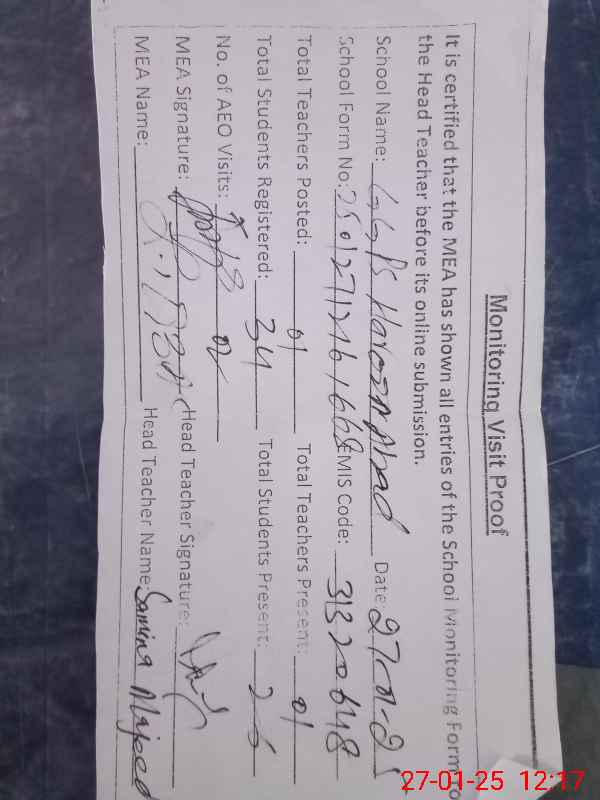 Monitoring Visit Proof
It is certified that the MEA has shown all entries of the School Monitoring Form to
the Head Teacher before its online submission.
School Name: GGPS Haroon Abad Date: 27-01-25
School Form No: EMIS Code: 31320648
Total Teachers Posted: 01 Total Teachers Present: 01
Total Students Registered: 34 Total Students Present: 26
No. of AEO Visits: 02
MEA Signature: Head Teacher Signature:
MEA Name: Head Teacher Name: Samina Majeed
27-01-25 12:17